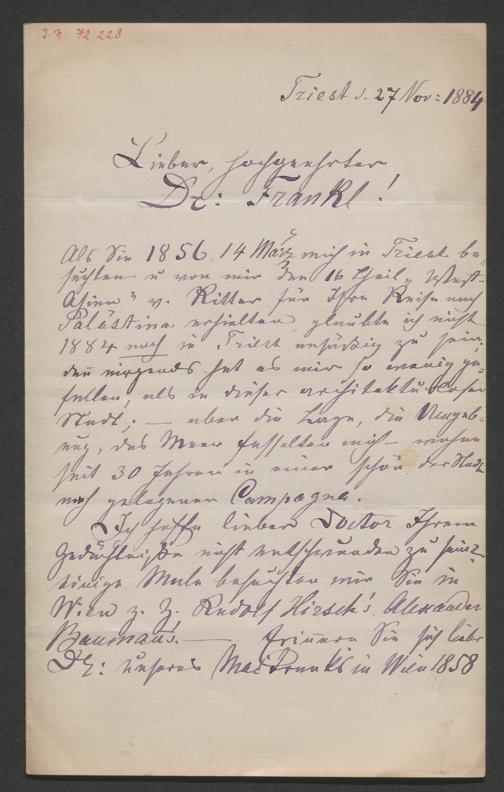 J. N. 72 228
Triest d. 27 Nov: 1884
Lieber, hochgeehrter
Dr: Frankl!
Als Sie 1856 14 März mich in Triest be„
suchten u von mir den 16 Theil „West-
Asien" v. Ritter für Ihre Reise nach
Palästina erhielten, glaubte ich nicht
1884 noch in Triest ansässig zu sein,
den nirgends hat es mir so wenig ge„
fallen, als in dieser architekturlosen
Stadt; — aber die Lage, die Umgeb„
ung, das Meer fesselten mich — wohne
seit 30 Jahren in einer schön der Stadt
nah gelegenen Campagna.
Ich hoffe lieber Doctor Ihrem
Gedächtniße nicht entschwunden zu sein:
einige Male besuchten wir Sie in
Wien z. Z. Rudolf Hirsch's, Alexander
Bauman's. — Erinnern Sie sich lieber
Dr: unseres Maitrunk's in Wien 1858